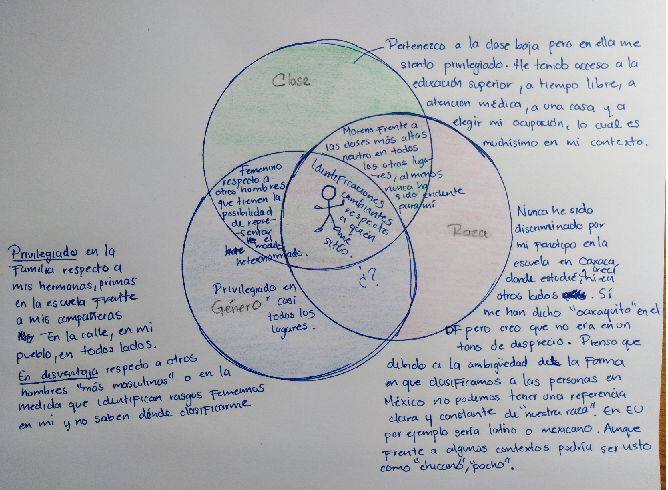 Clase
Pertenezco a la clase baja pero en ella me
siento privilegiado. He tenido acceso a la
educación superior, a tiempo libre, a
atención médica, a una casa y a
elegir mi ocupación, lo cual es
muchísimo en mi contexto.
Moreno frente a
las clases más altas
neutro en todos
los otros luga-
res, al menos
nunca ha
sido evidente
para mí
Femenino
respecto a
otros hombres
que tienen la
posibilidad
de repre-
sentar
el
modelo
heteronormado.
Identificaciones
cambiantes
respecto
a quién
me
sitúo.
Raza
¿?
Privilegiado en
Género
casi
todos los
lugares.
Privilegiado en la
familia respecto a
mis hermanas, primas
en la escuela frente
a mis compañeras
En la calle, en mi
pueblo, en todos lados.
En desventaja respecto a otros
hombres "más masculinos" o en la
medida que identifican rasgos femeninos
en mi y no saben dónde clasificarme
Nunca he sido
discriminado por
mi fenotipo en la
escuela en Oaxaca,
donde estudié, crecí
ni en
otros lados. Sí
me han dicho "oaxaquito" en el
DF pero creo que no era en un
tono de desprecio. Pienso que
debido a la ambigüedad de la forma
en que clasificamos a las personas en
México no podemos tener una referencia
clara y constante de "nuestra raza". En EU
por ejemplo sería latino o mexicano. Aunque
frente a algunos contextos podría ser visto
como "chicano", "pocho".